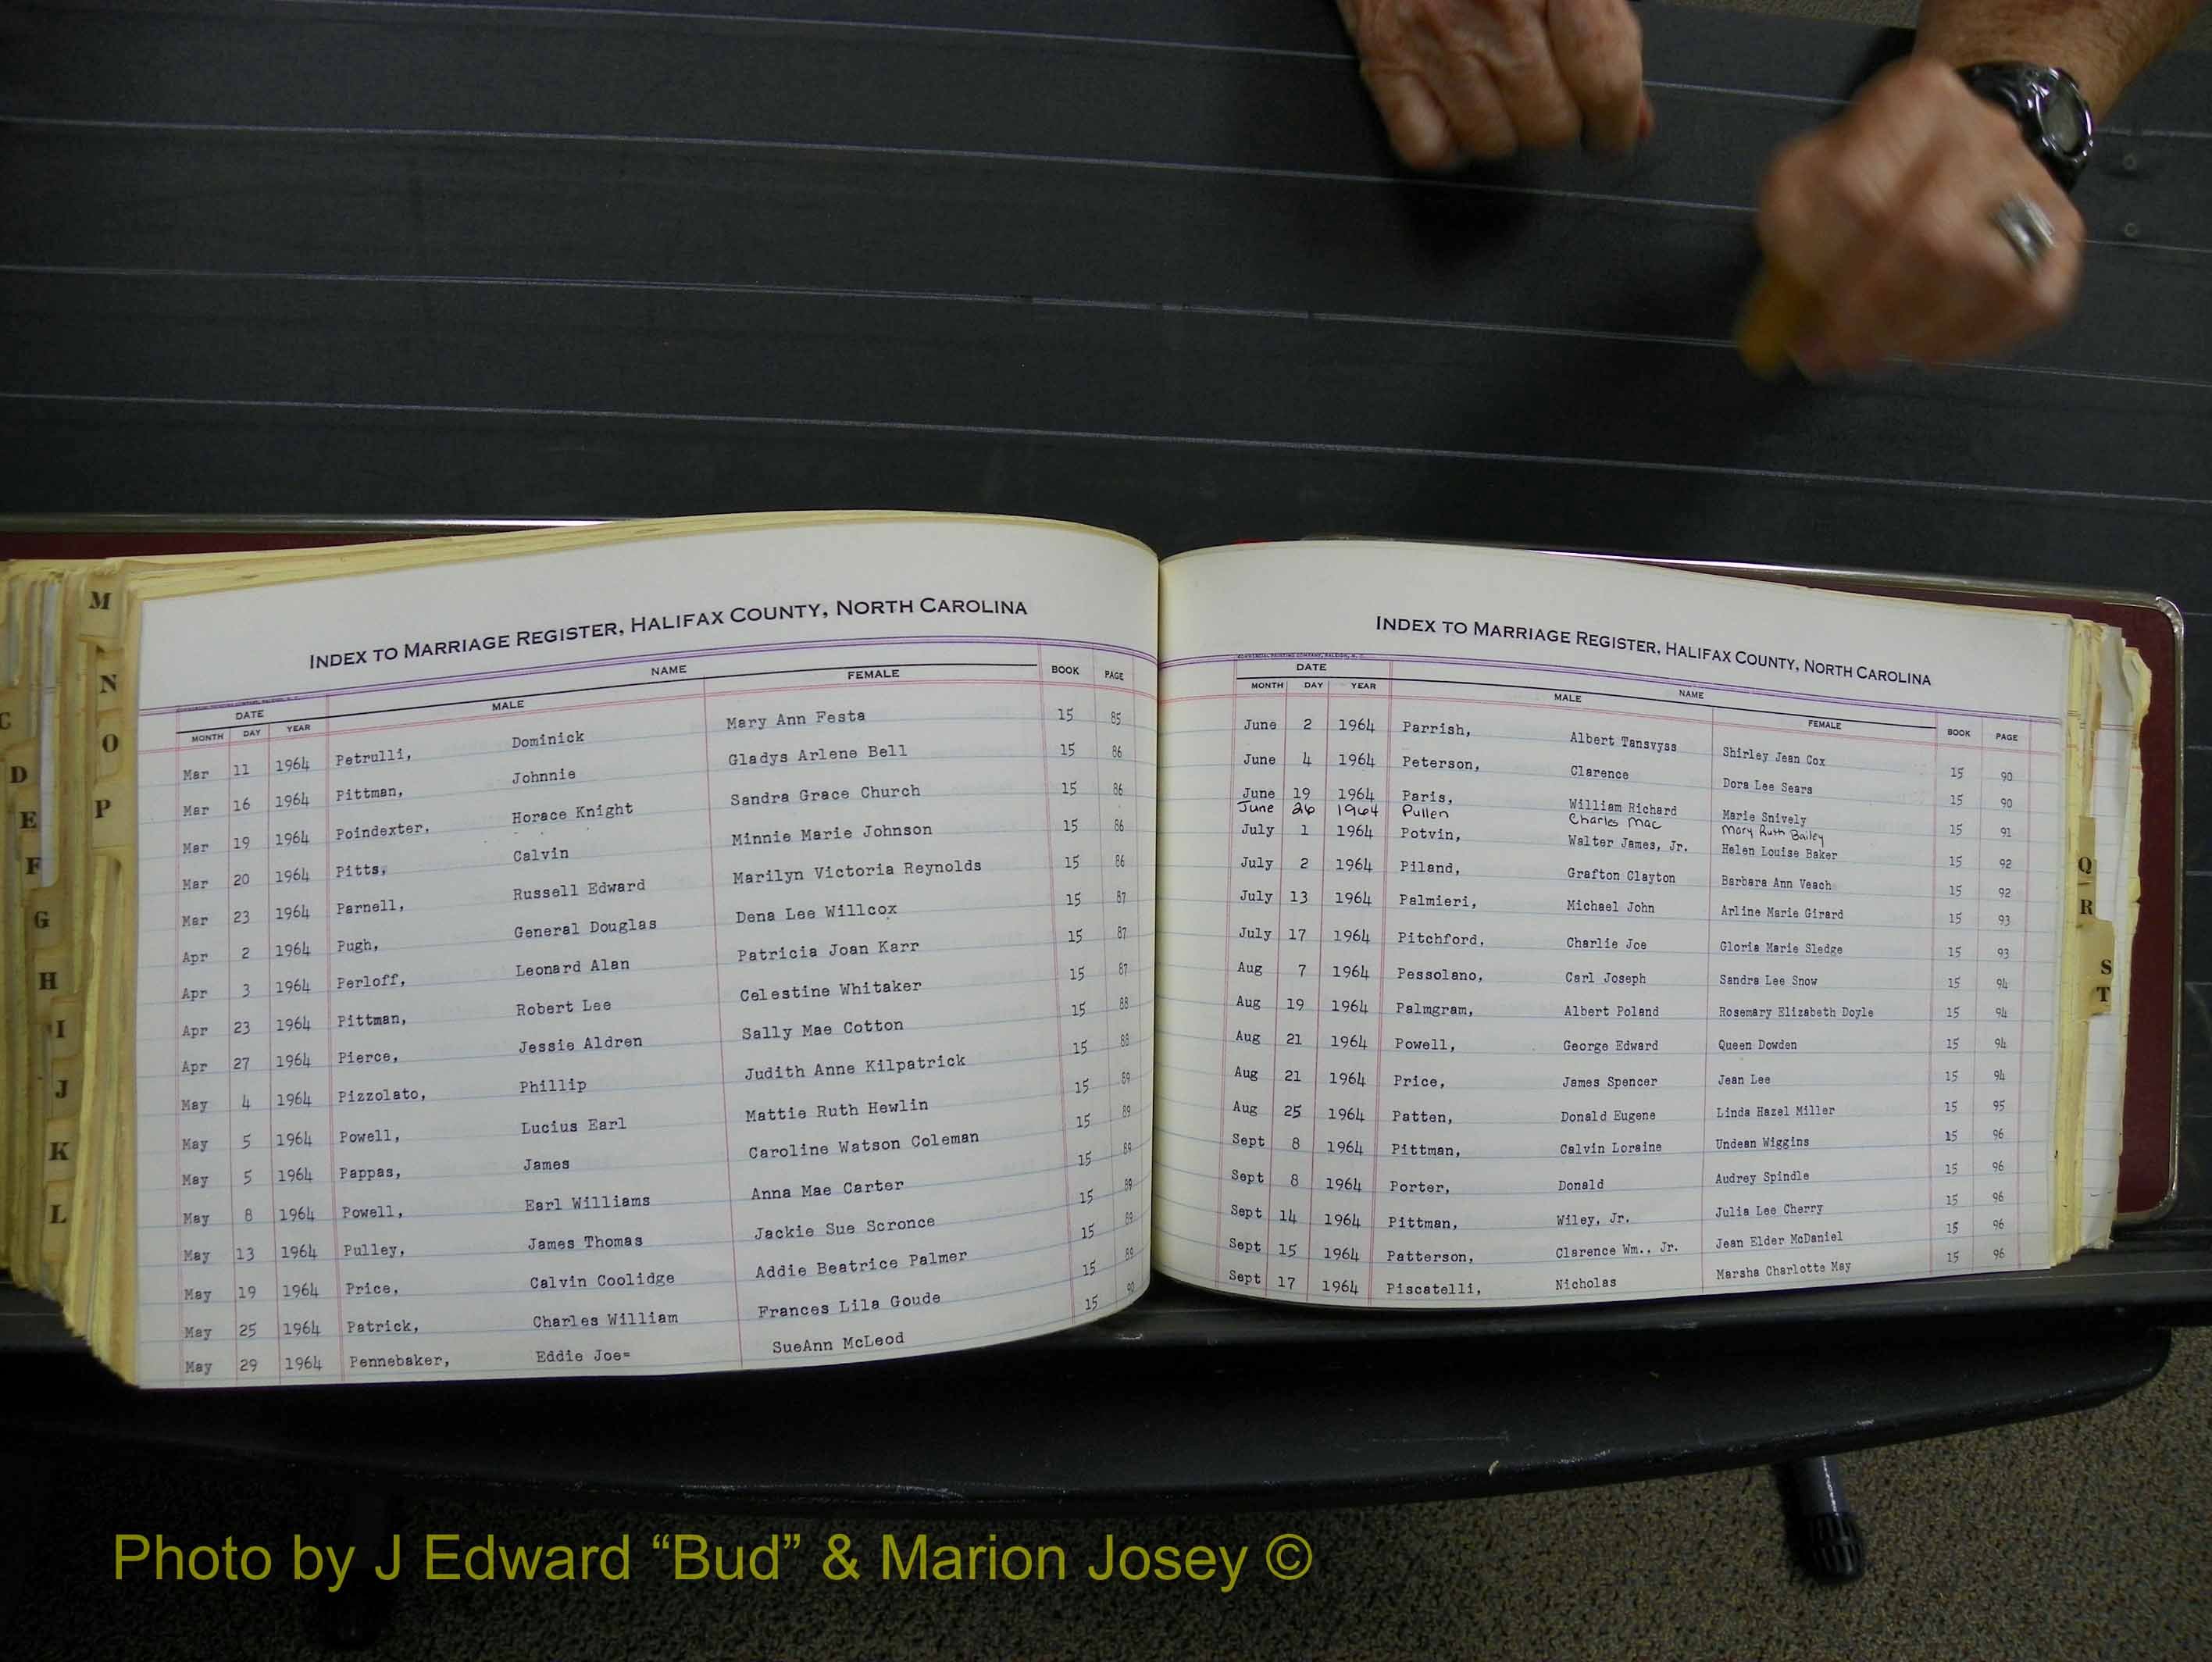 INDEX TO MARRIAGE REGISTER, HALIFAX COUNTY, NORTH CAROLINA
DATE NAME
MONTH DAY YEAR MALE FEMALE BOOK PAGE
Mar 11 1964 Petrulli, Dominick Mary Ann Festa 15 85
Mar 16 1964 Pittman, Johnnie Gladys Arlene Bell 15 86
Mar 19 1964 Poindexter, Horace Knight Sandra Grace Church 15 86
Mar 20 1964 Pitts, Calvin Minnie Marie Johnson 15 86
Mar 23 1964 Parnell, Russell Edward Marilyn Victoria Reynolds 15 86
Apr 2 1964 Pugh, General Douglas Dena Lee Willcox 15 87
Apr 3 1964 Perloff, Leonard Alan Patricia Joan Karr 15 87
Apr 23 1964 Pittman, Robert Lee Celestine Whitaker 15 87
Apr 27 1964 Pierce, Jessie Aldren Sally Mae Cotton 15 88
May 4 1964 Pizzolato, Phillip Judith Anne Kilpatrick 15 88
May 5 1964 Powell, Lucius Earl Mattie Ruth Hewlin 15 89
May 5 1964 Pappas, James Caroline Watson Coleman 15 89
May 8 1964 Powell, Earl Williams Anna Mae Carter 15 89
May 13 1964 Pulley, James Thomas Jackie Sue Scronce 15 89
May 19 1964 Price, Calvin Coolidge Addie Beatrice Palmer 15 89
May 25 1964 Patrick, Charles William Frances Lila Goude 15 89
May 29 1964 Pennebaker, Eddie Joe= SueAnn McLeod 15 90
INDEX TO MARRIAGE REGISTER, HALIFAX COUNTY, NORTH CAROLINA
DATE NAME
MONTH DAY YEAR MALE FEMALE BOOK PAGE
June 2 1964 Parrish, Albert Tansvyss Shirley Jean Cox 15 90
June 4 1964 Peterson, Clarence Dora Lee Sears 15 90
June 19 1964 Paris, William Richard Marie Snively 15 91
June 26 1964 Pullen Charles Mac Mary Ruth Bailey
July 1 1964 Potvin, Walter James, Jr. Helen Louise Baker 15 92
July 2 1964 Piland, Grafton Clayton Barbara Ann Veach 15 92
July 13 1964 Palmieri, Michael John Arline Marie Girard 15 93
July 17 1964 Pitchford, Charlie Joe Gloria Marie Sledge 15 93
Aug 7 1964 Pessolano, Carl Joseph Sandra Lee Snow 15 94
Aug 19 1964 Palmgram, Albert Poland Rosemary Elizabeth Doyle 15 94
Aug 21 1964 Powell, George Edward Queen Dowden 15 94
Aug 21 1964 Price, James Spencer Jean Lee 15 94
Aug 25 1964 Patten, Donald Eugene Linda Hazel Miller 15 95
Sept 8 1964 Pittman, Calvin Loraine Undean Wiggins 15 96
Sept 8 1964 Porter, Donald Audrey Spindle 15 96
Sept 14 1964 Pittman, Wiley, Jr. Julia Lee Cherry 15 96
Sept 15 1964 Patterson, Clarence Wm., Jr. Jean Elder McDaniel 15 96
Sept 17 1964 Piscatelli, Nicholas Marsha Charlotte May 15 96
C
D
E
F
G
H
I
J
K
L
M
N
O
P
Q
R
S
T
Photo by J Edward “Bud” & Marion Josey ©